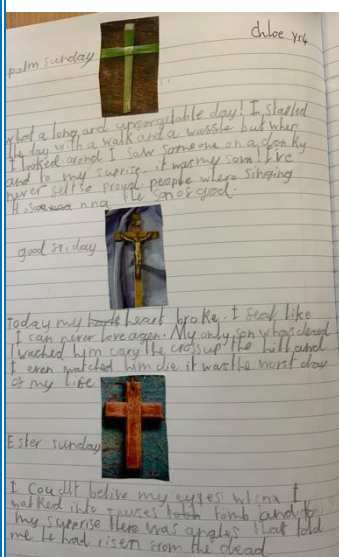 chloe yr4
palm sunday
what a long and unforgetable day! I started
the day with a walk and a wassle but when
I looked arond I saw someone on a donky
and to my suprise, it was my son! I've
never selt so proud people where singing
the son of god.
good friday
Today my heart broke. I seal like
I can never love agen. My only son
I wached him cary the cross up the hill and
I even watched him die it was the worst day
of my life
Ester sunday
I coudlt belive my eyes when I
walked into tomb and to
my surprise there was angles that told
me he had risen from the dead